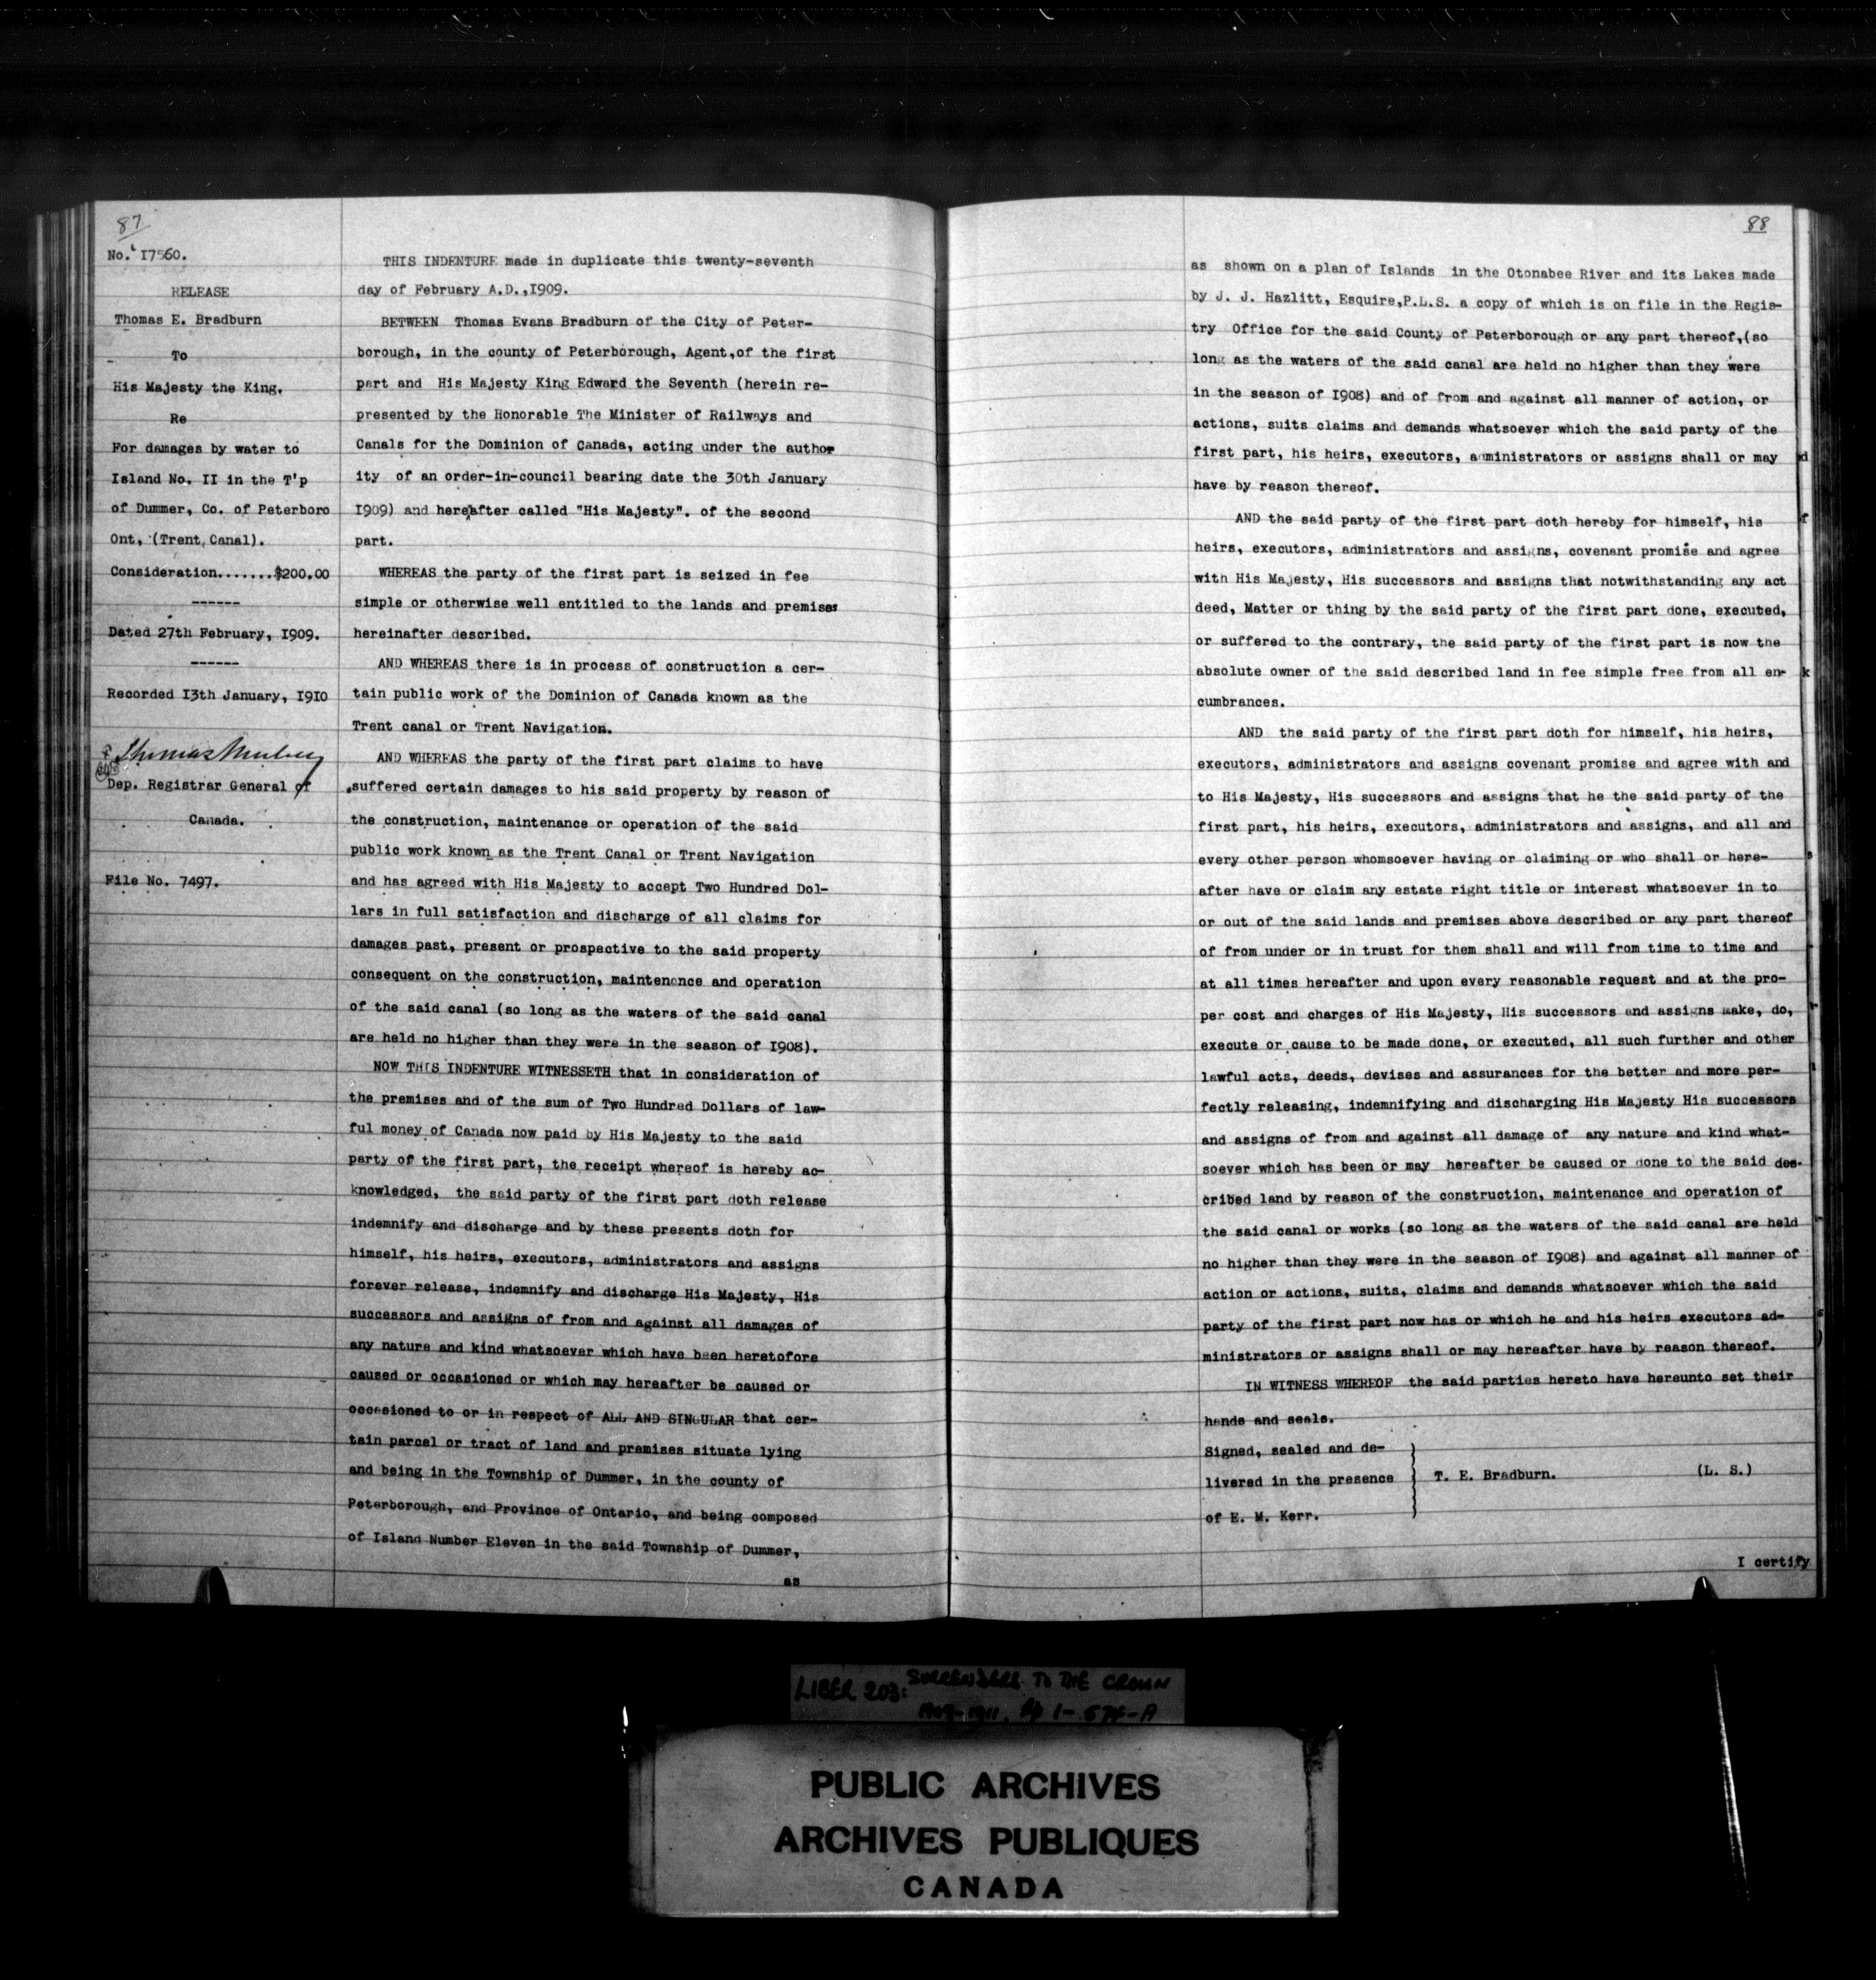 87
No. I7560.
RELEASE
Thomas E. Bradburn
To
His Majesty the King.
Re
For damages by water to
Island No. II in the T'p
of Dummer, Co. of Peterboro
Ont, (Trent Canal).
Consideration.......$200.00
------
Dated 27th February, I909.
------
Recorded I3th January, I9I0
Thomas Mulvey
Dep. Registrar General of
Canada.
File No. 7497.
THIS INDENTURE made in duplicate this twenty-seventh
day of February A.D.,I909.
BETWEEN Thomas Evans Bradburn of the City of Peter-
borough, in the county of Peterborough, Agent,of the first
part and His Majesty King Edward the Seventh (herein re-
presented by the Honorable The Minister of Railways and
Canals for the Dominion of Canada, acting under the author
ity of an order-in-council bearing date the 30th January
I909) and hereafter called "His Majesty". of the second
part.
WHEREAS the party of the first part is seized in fee
simple or otherwise well entitled to the lands and premises
hereinafter described.
AND WHEREAS there is in process of construction a cer-
tain public work of the Dominion of Canada known as the
Trent canal or Trent Navigation.
AND WHEREAS the party of the first part claims to have
suffered certain damages to his said property by reason of
the construction, maintenance or operation of the said
public work known as the Trent Canal or Trent Navigation
and has agreed with His Majesty to accept Two Hundred Dol-
lars in full satisfaction and discharge of all claims for
damages past, present or prospective to the said property
consequent on the construction, maintenance and operation
of the said canal (so long as the waters of the said canal
are held no higher than they were in the season of I908).
NOW THIS INDENTURE WITNESSETH that in consideration of
the premises and of the sum of Two Hundred Dollars of law-
ful money of Canada now paid by His Majesty to the said
party of the first part, the receipt whereof is hereby ac-
knowledged, the said party of the first part doth release
indemnify and discharge and by these presents doth for
himself, his heirs, executors, administrators and assigns
forever release, indemnify and discharge His Majesty, His
successors and assigns of from and against all damages of
any nature and kind whatsoever which have been heretofore
caused or occasioned or which may hereafter be caused or
occasioned to or in respect of ALL AND SINGULAR that cer-
tain parcel or tract of land and premises situate lying
and being in the Township of Dummer, in the county of
Peterborough, and Province of Ontario, and being composed
of Island Number Eleven in the said Township of Dummer,
as
88
as shown on a plan of Islands in the Otonabee River and its Lakes made
by J. J. Hazlitt, Esquire,P.L.S. a copy of which is on file in the Regis-
try Office for the said County of Peterborough or any part thereof,(so
long as the waters of the said canal are held no higher than they were
in the season of I908) and of from and against all manner of action, or
actions, suits claims and demands whatsoever which the said party of the
first part, his heirs, executors, administrators or assigns shall or may
have by reason thereof.
AND the said party of the first part doth hereby for himself, his
heirs, executors, administrators and assigns, covenant promise and agree
with His Majesty, His successors and assigns that notwithstanding any act
deed, Matter or thing by the said party of the first part done, executed,
or suffered to the contrary, the said party of the first part is now the
absolute owner of the said described land in fee simple free from all en-
cumbrances.
AND the said party of the first part doth for himself, his heirs,
executors, administrators and assigns covenant promise and agree with and
to His Majesty, His successors and assigns that he the said party of the
first part, his heirs, executors, administrators and assigns, and all and
every other person whomsoever having or claiming or who shall or here-
after have or claim any estate right title or interest whatsoever in to
or out of the said lands and premises above described or any part thereof
of from under or in trust for them shall and will from time to time and
at all times hereafter and upon every reasonable request and at the pro-
per cost and charges of His Majesty, His successors and assigns make, do,
execute or cause to be made done, or executed, all such further and other
lawful acts, deeds, devises and assurances for the better and more per-
fectly releasing, indemnifying and discharging His Majesty His successors
and assigns of from and against all damage of any nature and kind what-
soever which has been or may hereafter be caused or done to the said des-
cribed land by reason of the construction, maintenance and operation of
the said canal or works (so long as the waters of the said canal are held
no higher than they were in the season of I908) and against all manner of
action or actions, suits, claims and demands whatsoever which the said
party of the first part now has or which he and his heirs executors ad-
ministrators or assigns shall or may hereafter have by reason thereof.
IN WITNESS WHEREOF the said parties hereto have hereunto set their
hands and seals.
Signed, sealed and de-
livered in the presence T. E. Bradburn. (L. S.)
of E. M. Kerr.
I certify
LIBER 203: SURRENDERS TO THE CROWN
1909-1911. Pp 1-574-A
PUBLIC ARCHIVES
ARCHIVES PUBLIQUES
CANADA